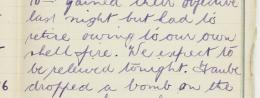 10 - gained their objective
last night but had to
retire owing to our own
shell fire. We expect to
be relieved tonight. Taube
dropped a bomb on the